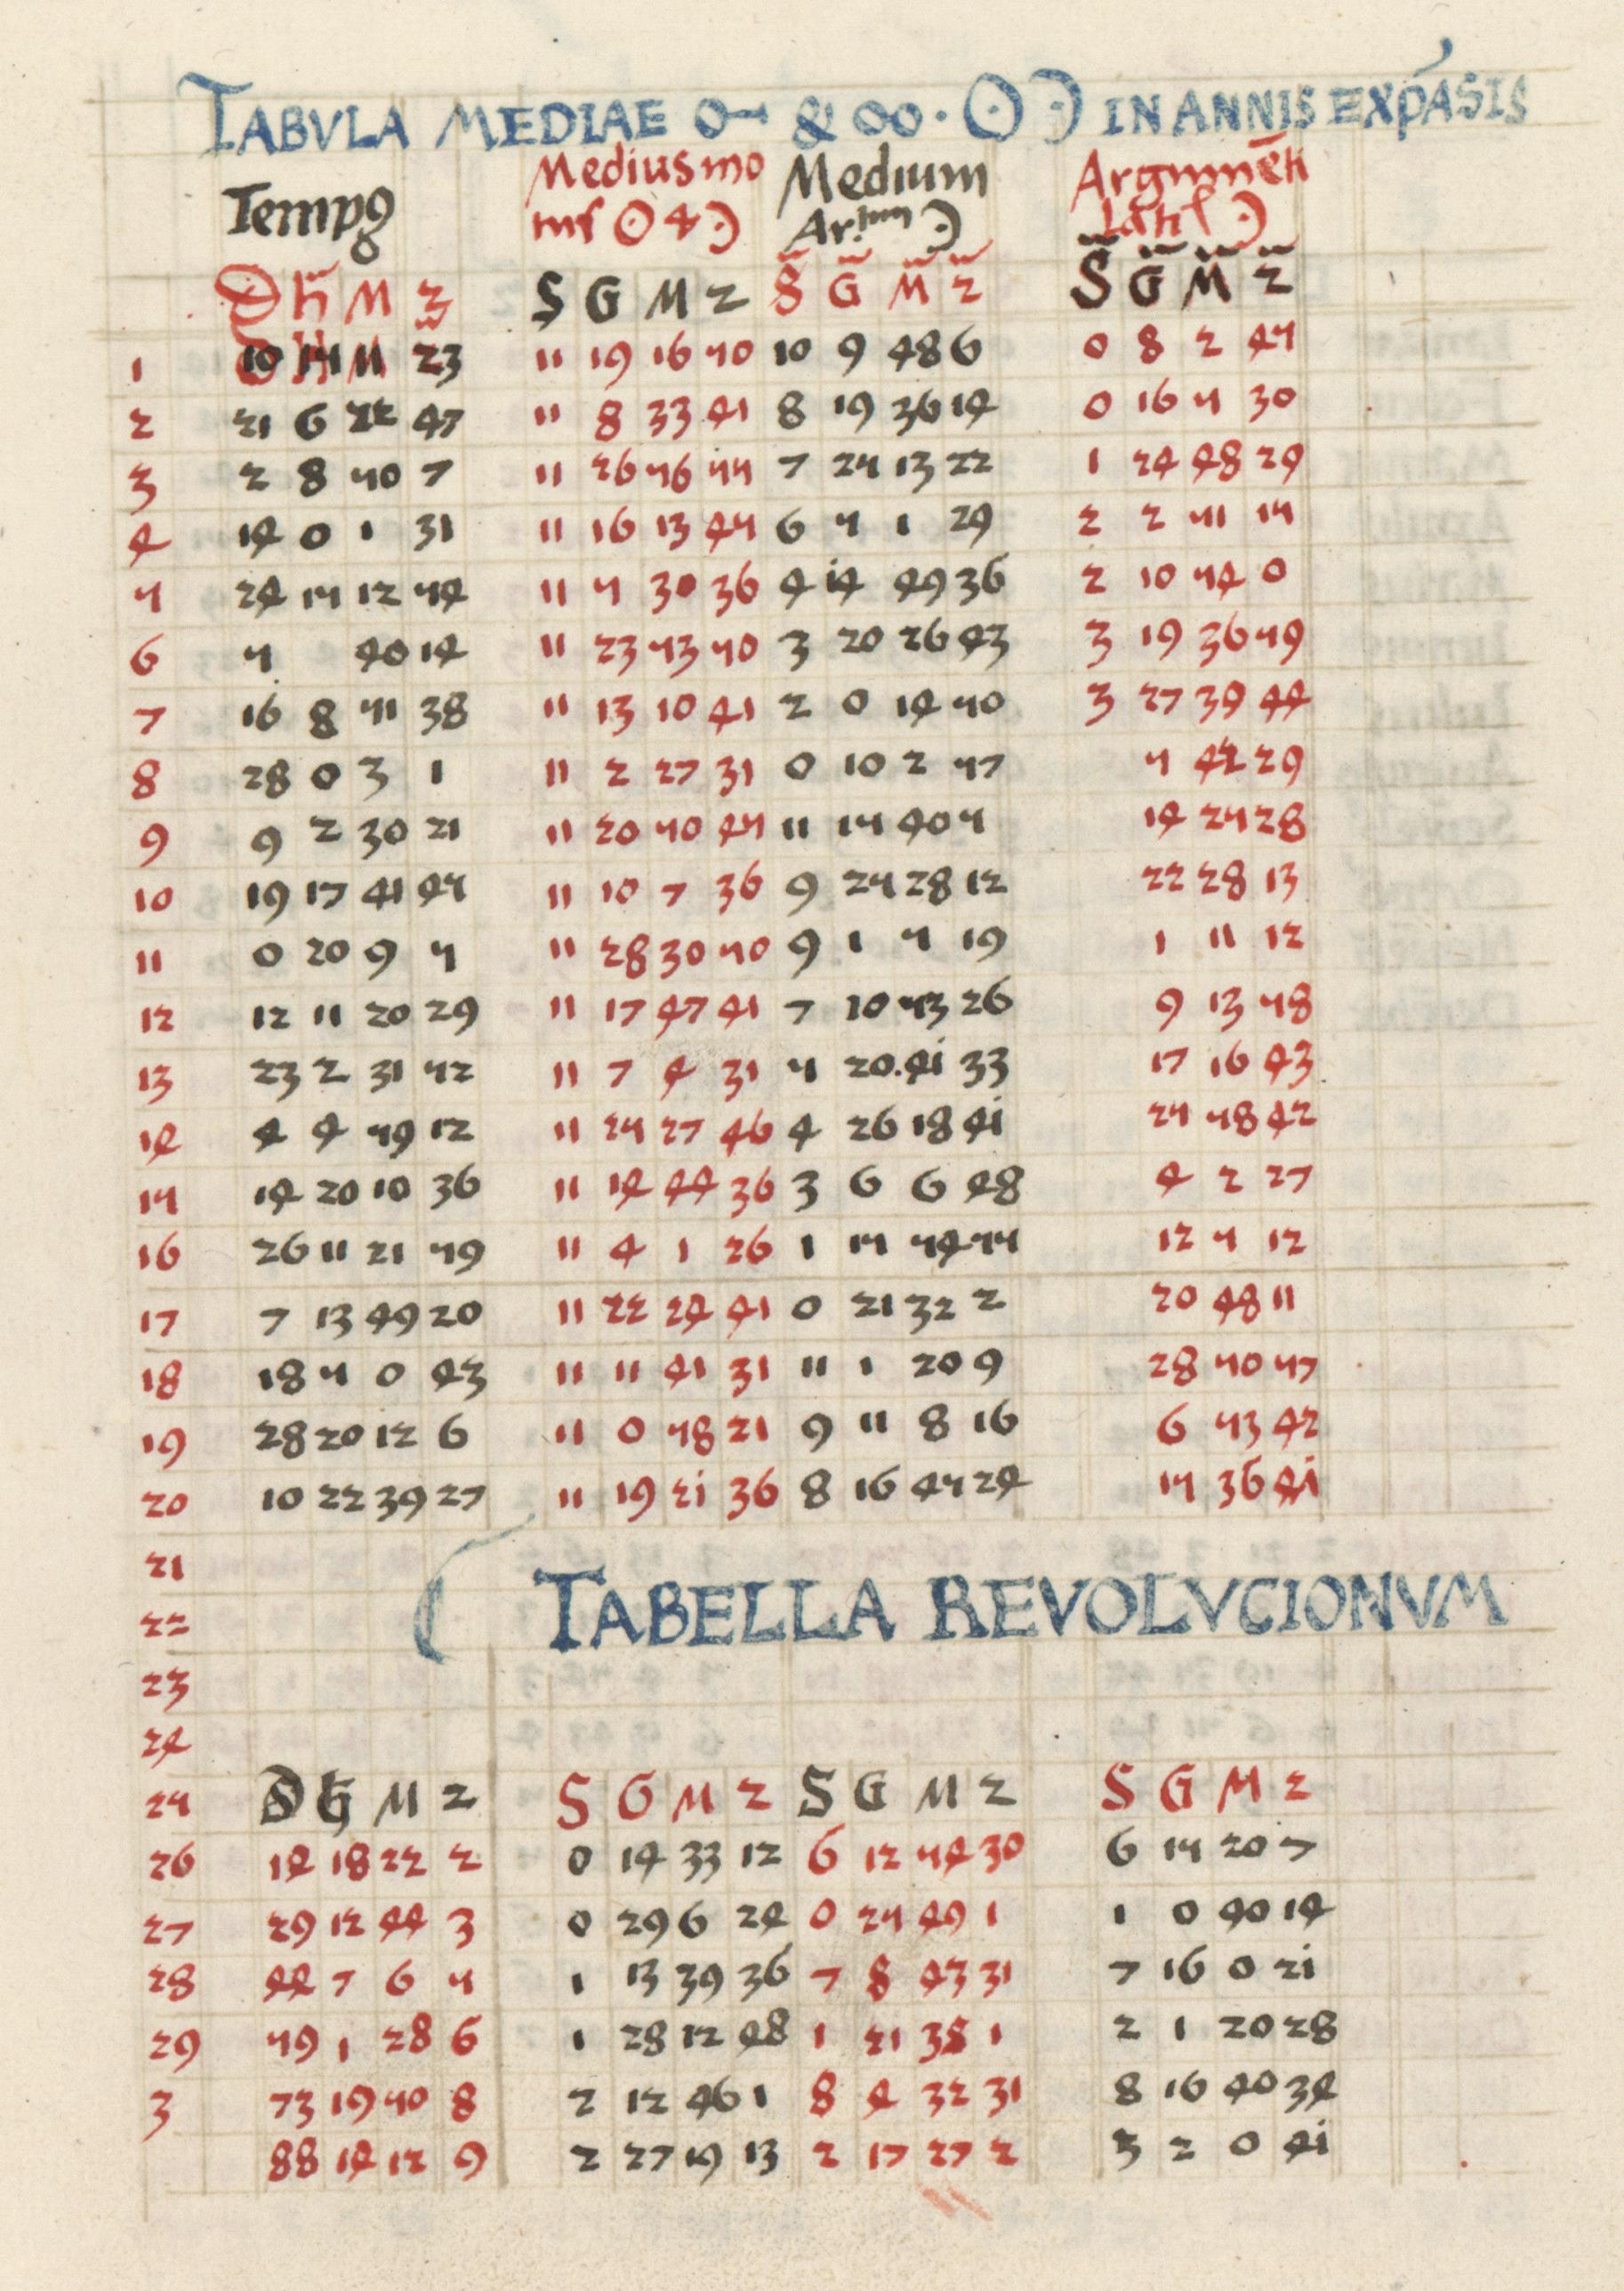 TABVLA MEDIAE ☍ & ☌ · ☉ ☽ IN ANNIS EXPASIS
Tempꝰ Medius mo Medium Argumẽti
D H M 2 S G M 2 S G M 2 S G M 2
1 10 15 11 23 11 19 16 50 10 9 48 6 0 8 2 45
2 21 6 22 47 11 8 33 41 8 19 36 14 0 16 5 30
3 2 8 50 7 11 26 56 55 7 25 13 22 1 24 48 29
4 14 0 1 31 11 16 13 45 6 5 1 29 2 2 51 15
5 24 15 12 54 11 5 30 36 4 14 49 36 2 10 54 0
6 5 40 14 11 23 53 50 3 20 26 43 3 19 36 59
7 16 8 51 38 11 13 10 41 2 0 14 50 3 27 39 44
8 28 0 3 1 11 2 27 31 0 10 2 57 5 42 29
9 9 2 30 21 11 20 50 45 11 15 40 5 14 25 28
10 19 17 41 45 11 10 7 36 9 25 28 12 22 28 13
11 0 20 9 5 11 28 30 50 9 1 5 19 1 11 12
12 12 11 20 29 11 17 47 41 7 10 53 26 9 13 58
13 23 2 31 52 11 7 4 31 5 20 . 41 33 17 16 43
14 4 4 59 12 11 25 27 46 4 26 18 41 25 58 42
15 14 20 10 36 11 14 44 36 3 6 6 48 4 2 27
16 26 11 21 59 11 4 1 26 1 15 54 55 12 5 12
17 7 13 49 20 11 22 24 41 0 21 32 2 20 48 11
18 18 5 0 43 11 11 41 31 11 1 20 9 28 50 57
19 28 20 12 6 11 0 58 21 9 11 8 16 6 53 42
20 10 22 39 27 11 19 21 36 8 16 45 24 15 36 41
21
22 TABELLA REVOLVCIONVM
23
24
25 D H M 2 S G M 2 S G M 2 S G M 2
26 14 18 22 2 0 14 33 12 6 12 54 30 6 15 20 7
27 29 12 44 3 0 29 6 24 0 25 49 1 1 0 40 14
28 44 7 6 5 1 13 39 36 7 8 43 31 7 16 0 21
29 59 1 28 6 1 28 12 48 1 21 38 1 2 1 20 28
3 73 19 50 8 2 12 46 1 8 4 32 31 8 16 40 34
88 14 12 9 2 27 19 13 2 17 27 2 3 2 0 41